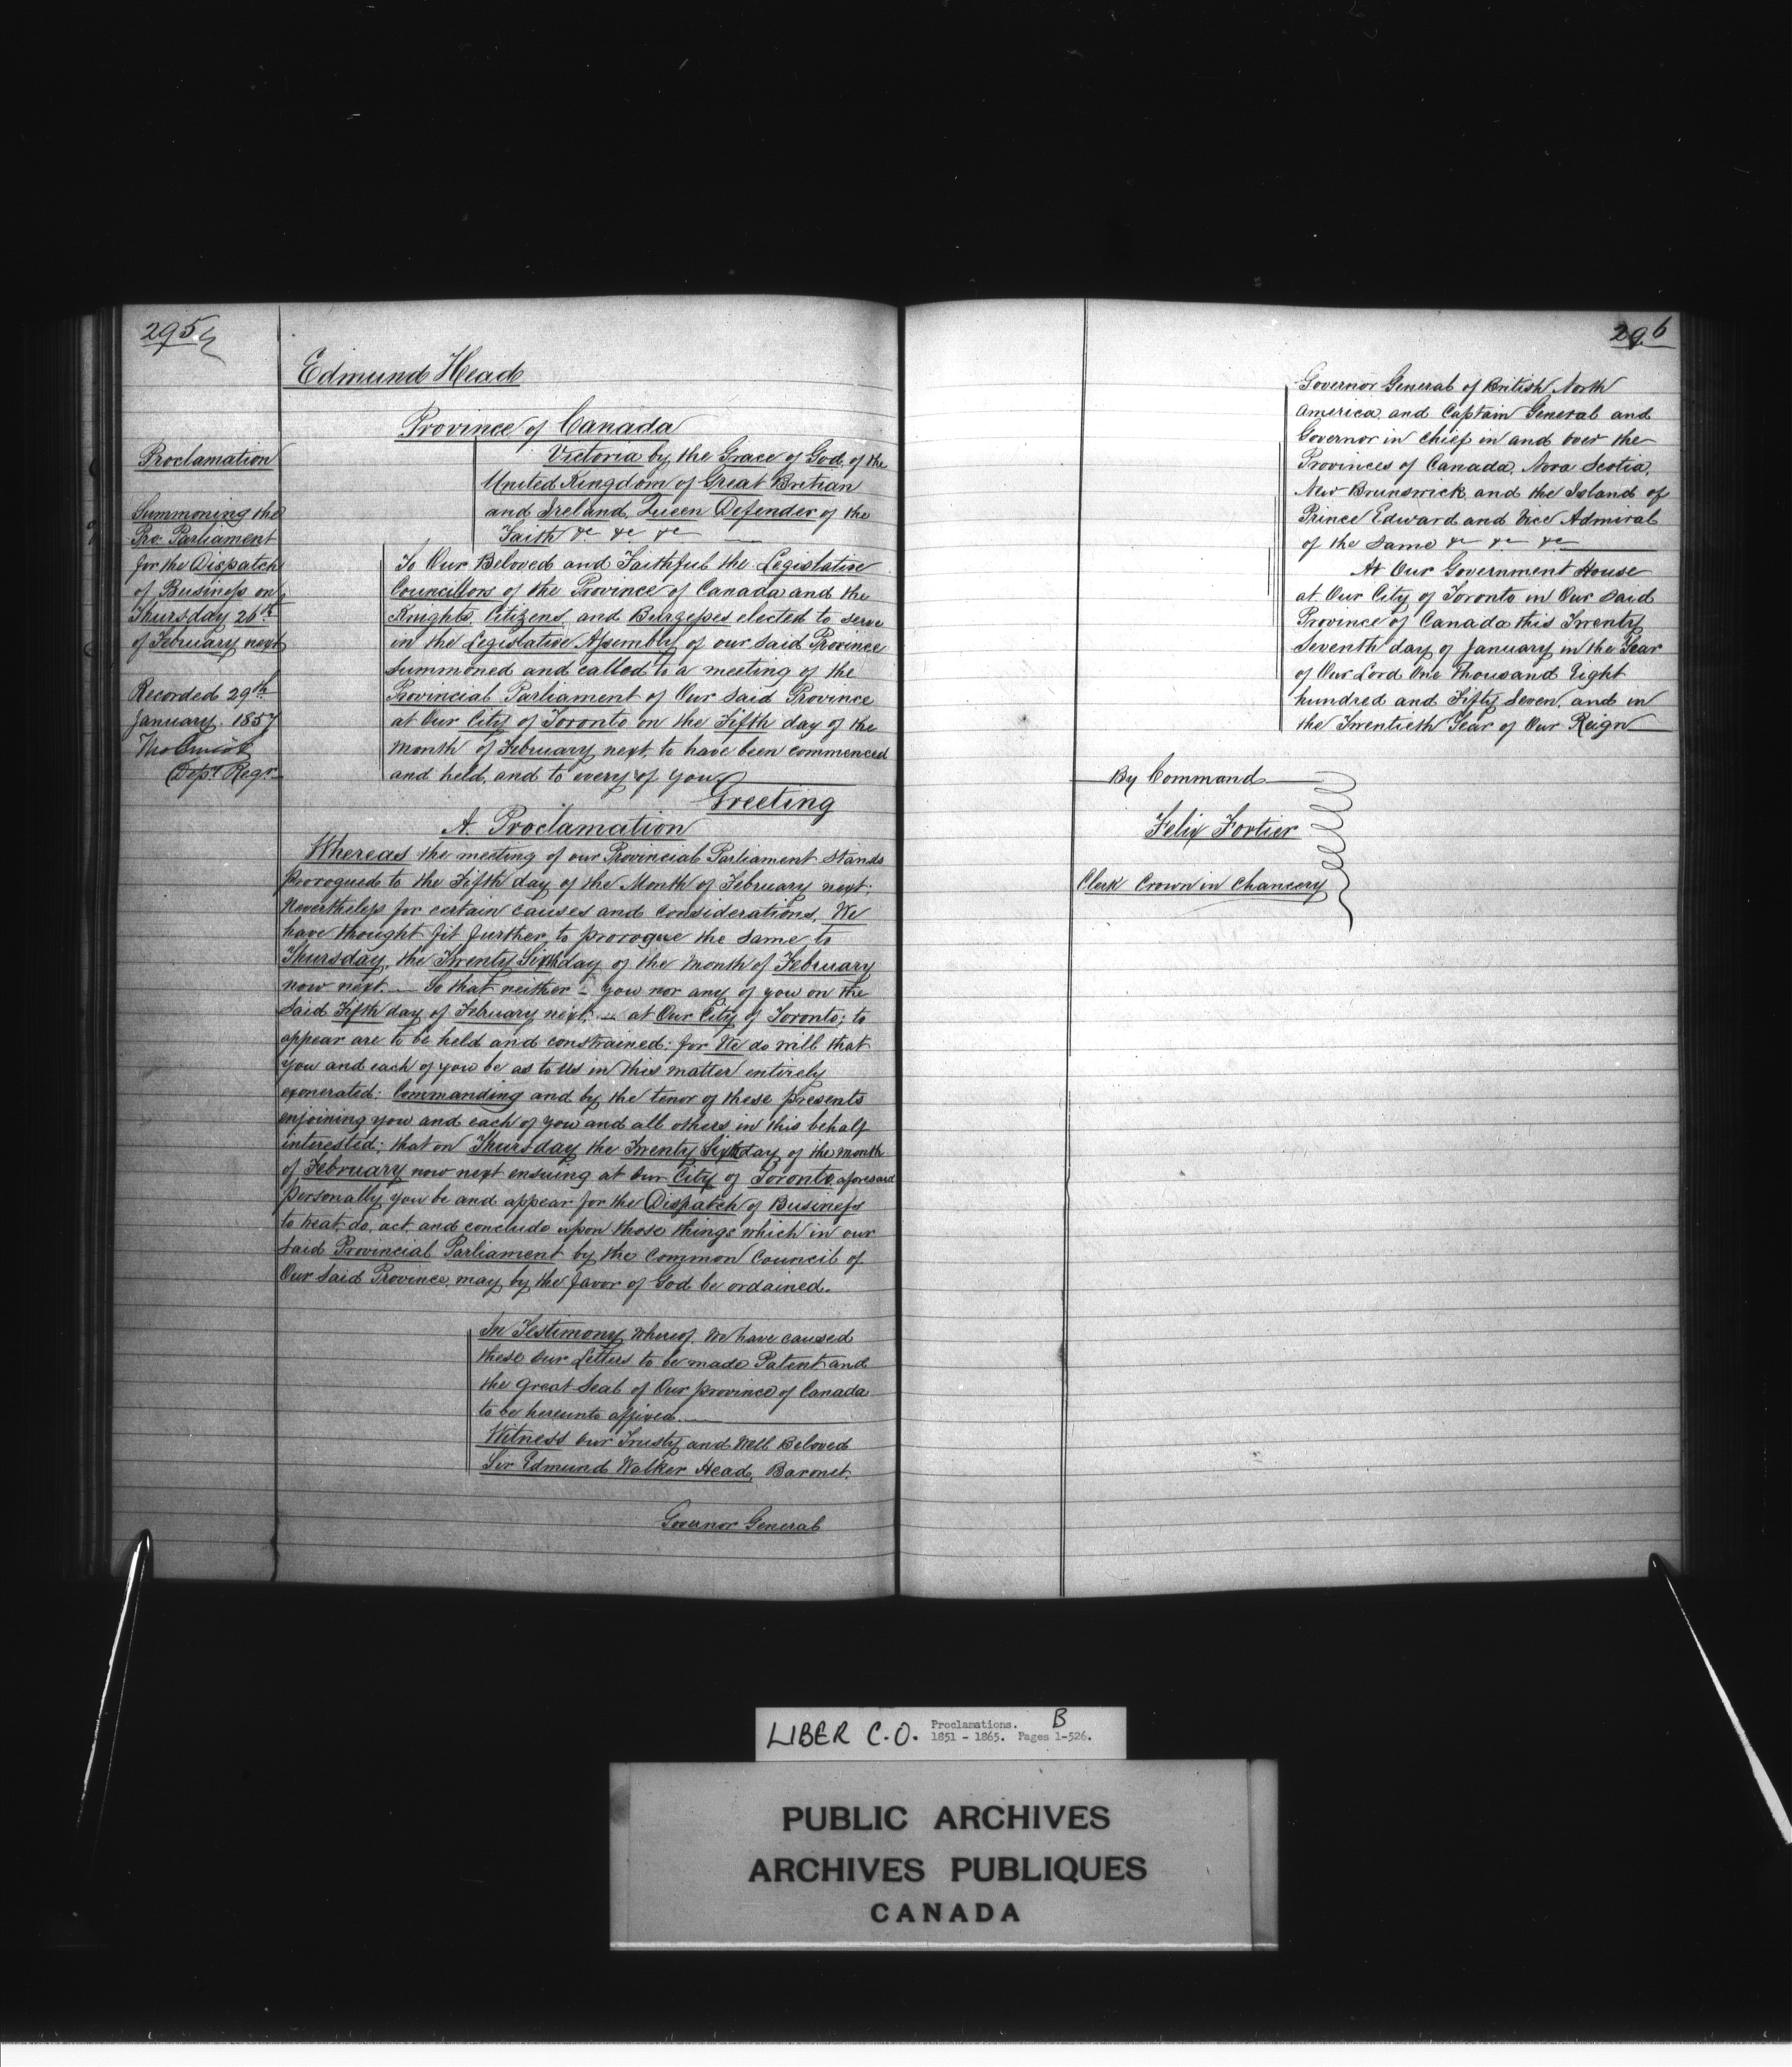 295
Edmund Head
Province of Canada
Proclamation
Summoning the
Pro: Parliament
for the Dispatch
of Business on
Thursday 26th
of February next
Recorded 29th
January. 1857
Depy Regr
Victoria by the Grace of God, of the
United Kingdom of Great Britian
and Ireland, Queen Defender of the
Faith &c &c &c
To Our Beloved and Faithful the Legislative
Councillors of the Province of Canada and the
Knights, Citizens, and Burgesses elected to serve
in the Legislative Assembly of our said Province
Summoned and called to a meeting of the
Provincial Parliament of Our said Province
at Our City of Toronto on the Fifth day of the
Month of February next, to have been commenced
and held, and to every of you
Greeting
A. Proclamation
Whereas the meeting of our Provincial Parliament stands
Prorogued to the Fifth day of the Month of February next:
Nevertheless for certain causes and considerations, We
have thought fit further to prorogue the same to
Thursday, the Twenty Sixth day of the Month of February
now next. So that neither you nor any of you on the
said Fifth day of February next, at Our City of Toronto; to
appear are to be held and constrained: for We do will that
you and each of you be as to Us in this matter entirely
exonerated: Commanding and by the tenor of these presents
enjoining you and each of you and all others in this behalf
interested; that on Thursday the Twenty Sixth day of the month
of February now next ensuing at Our City of Toronto aforesaid
personally you be and appear for the Dispatch of Business
to treat, do, act, and conclude upon those things which in our
said Provincial Parliament by the Common Council of
Our said Province, may by the favor of God be ordained.
In Testimony whereof, We have caused
these our Letters to be made Patent and
the Great Seal of Our province of Canada
to be hereunto affixed.
Witness our Trusty and Well Beloved
Sir Edmund Walker Head, Baronet.
Governor General
296
Governor General of British North
America and Captain General and
Governor in Chief in and over the
Provinces of Canada, Nova Scotia,
New Brunswick, and the Island of
Prince Edward and Vice Admiral
of the Same &c &c &c
At Our Government House
at Our City of Toronto in Our said
Province of Canada this Twenty
Seventh day of January in the Year
of Our Lord One Thousand Eight
hundred and Fifty Seven, and in
the Twentieth Year of Our Reign
By Command
Felix Fortier
Clerk Crown in Chancery
LIBER C.O. Proclamations. B
1851 - 1865. Pages 1-526.
PUBLIC ARCHIVES
ARCHIVES PUBLIQUES
CANADA